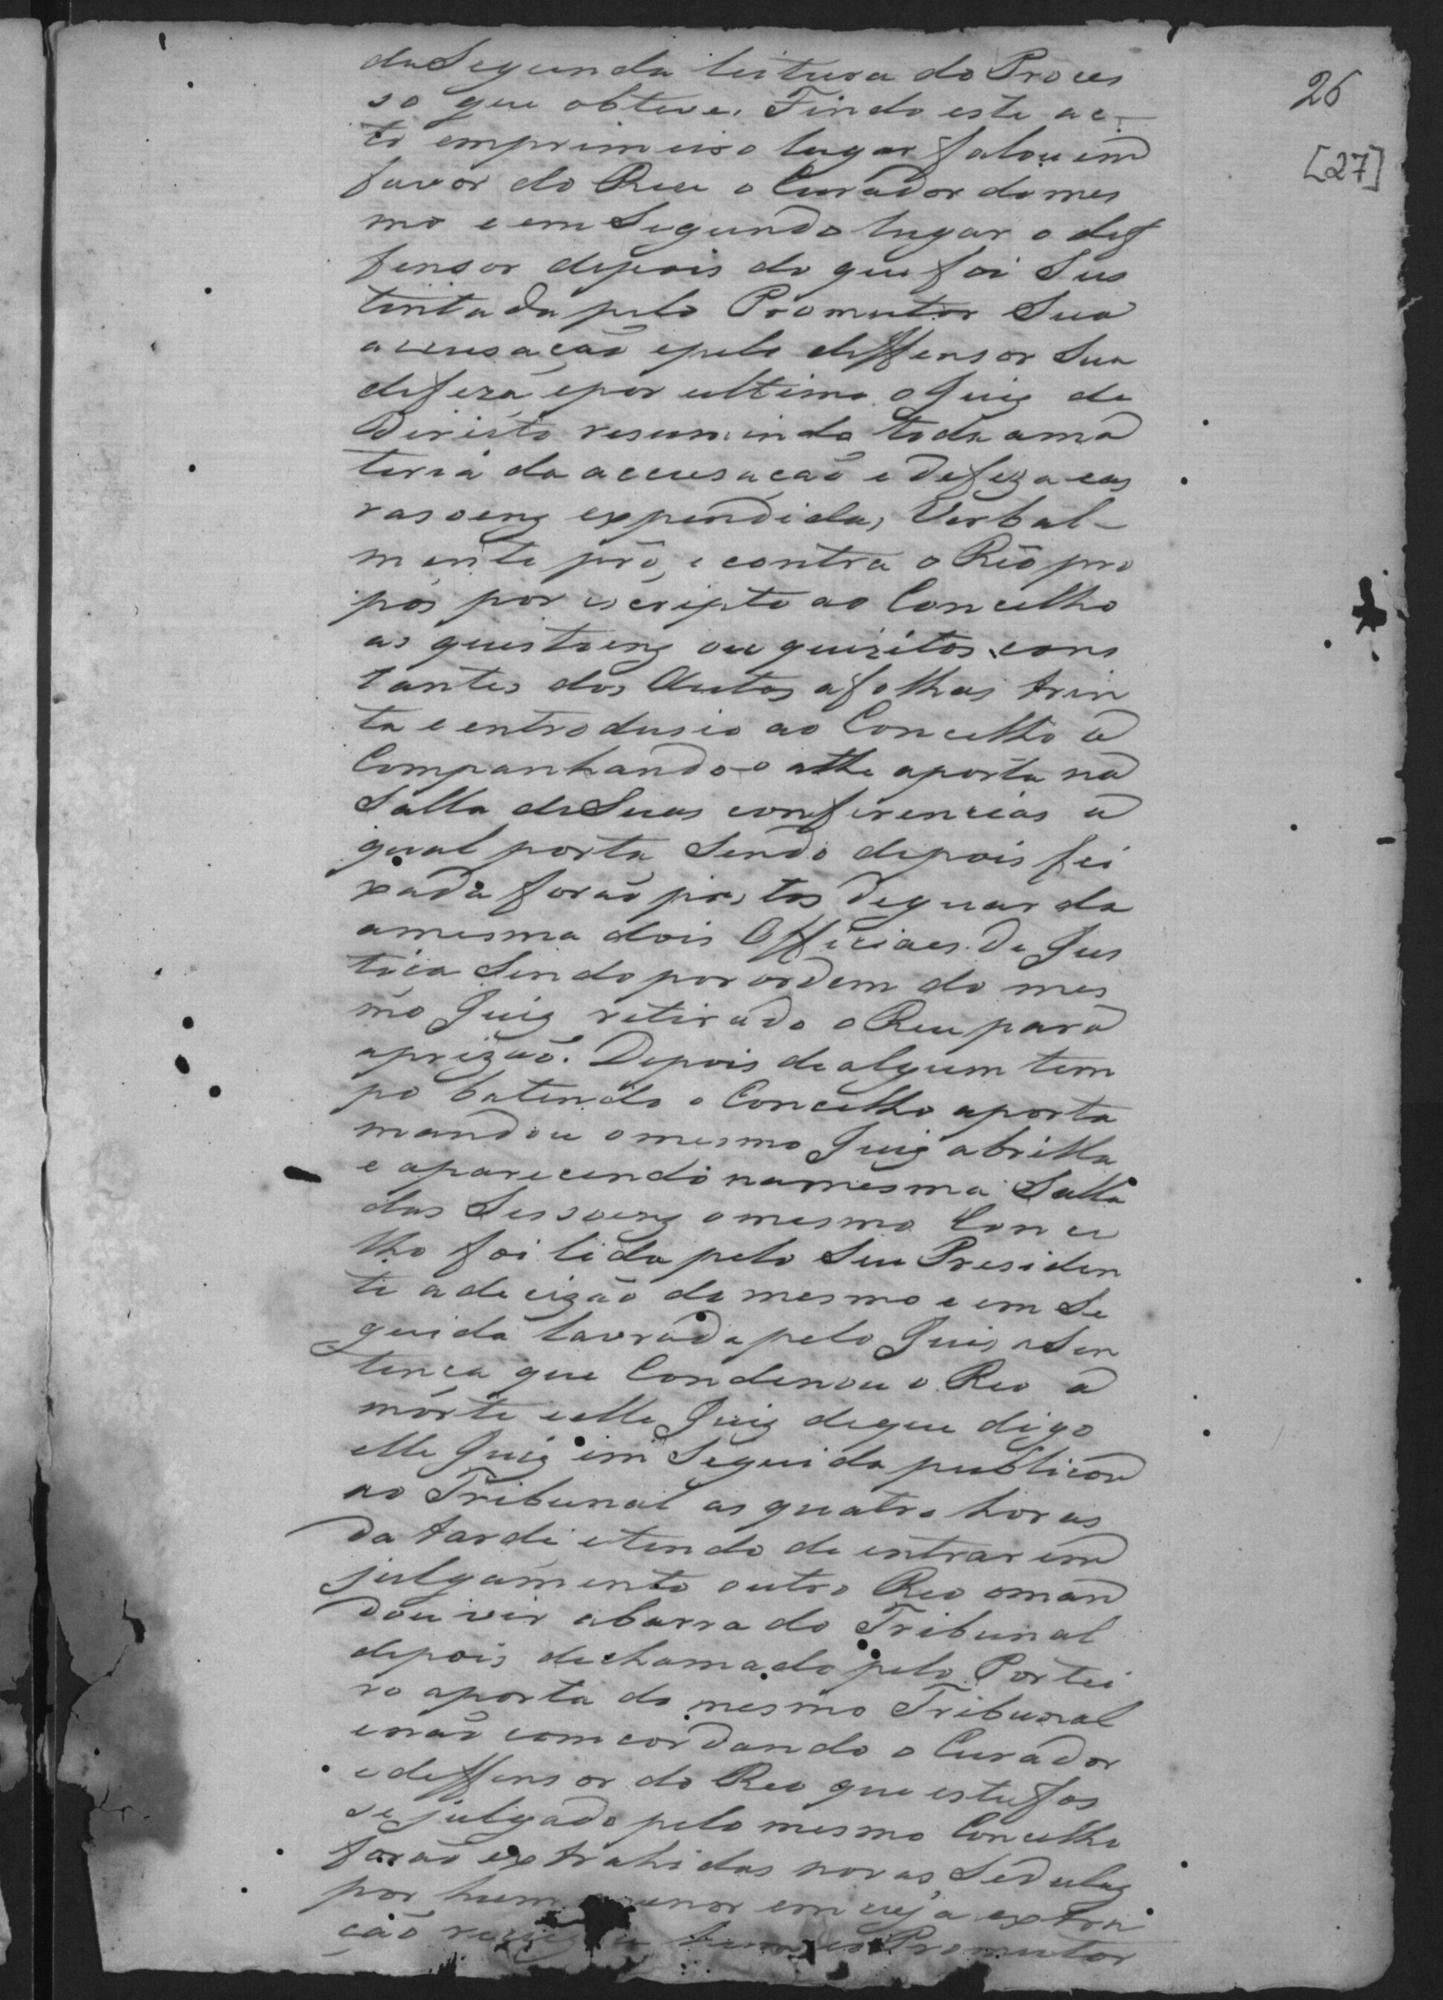 26
[27]
da Segunda leitura do Proces
so que obteve. Findo este ac-
to emprimeiro lugar falou em
favor do Reu o Curador do mes
mo e em Segundo lugar o def
fensor depois do que foi Sus
tentada pelo Promutor Sua
accusacão epelo deffensor Sua
defeza epor ultimo o Juiz de
Direito resumindo toda ama
teria da accusacão e defeza eas
rasoens expendidas Verbal-
mente pró, e contra o Réo pro
pos por escripto ao Concelho
as questoens ou quizitos cons
tantes dos Autos afolhas trin
ta e entrodusio ao Concelho a
Companhando-o athe aporta na
Salla de Suas conferencias a
qual porta Sendo depois fei
xada forão postos deguarda
amesma dois Officiaes de Jus
tica Sendo por ordem do mes
mo Juiz retirado o Reu para
aprizão. Depois de algum tem
po batendo o Concelho aporta
mandou o mesmo Juiz abrilla
e aparecendo na mesma Salla
das Sessoens o mesmo Conce
lho foi lida pelo Seu Presiden
te a decizão do mesmo e em Se
guida lavrada pelo Juis a Sen
tenca que Condenou o Reo a
morte e elle Juiz deque digo
elle Juiz em Seguida publicou
ao Tribunal as quatro horas
da tarde etendo de entrar em
julgamento outro Reo oman
dou vir abarra do Tribunal
depois de chamado pelo Portei
ro aporta do mesmo Tribunal
enão comcordando o Curador
e deffensor do Reo que este fos
se julgado pelo mesmo Concelho
forão extrahidas novas Sedulas
por hum menor em cuja extra
cão Promutor